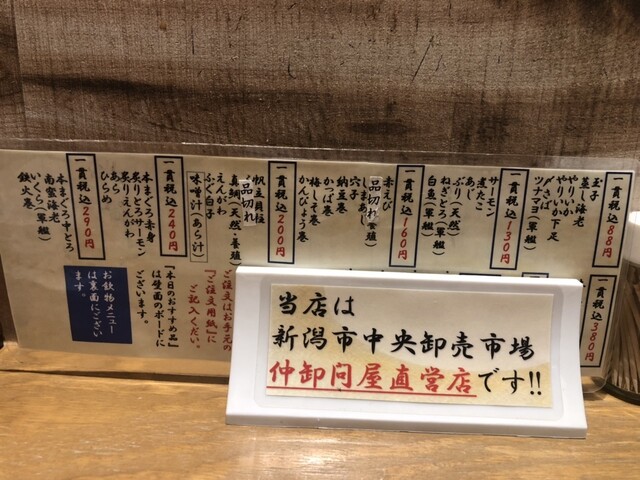 一貫税込88円
玉子
蒸し海老
やりいか
やりいか下足
〆さば
ツナマヨ(軍艦)
一貫税込130円
サーモン
煮だこ
あじ
ぶり(天然)
ねぎとろ(軍艦)
白魚(軍艦)
一貫税込160円
赤えび
しまあじ
品切れ
穴子
納豆巻
梅しそ巻
かっぱ巻
かんぴょう巻
一貫税込200円
帆立貝柱
品切れ
真鯛(天然・養殖)
えんがわ
ふぐ白子
味噌汁(あら汁)
一貫税込240円
本まぐろ赤身
炙りとろサーモン
炙りえんがわ
あら
ひらめ
一貫税込290円
本まぐろ中とろ
南蛮海老
いくら(軍艦)
鉄火巻
税込380円
ご注文はお手元の
「ご注文用紙」に
ご記入ください。
「本日のおすすめ品」
は壁面のボードに
ございます。
お飲物メニュー
は裏面にござい
ます。
当店は
新潟市中央卸売市場
仲卸問屋直営店です!!